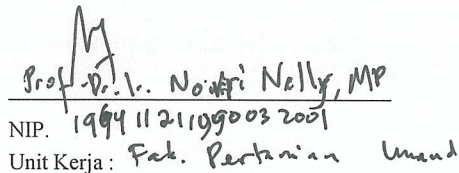 Prof. Dr. Ir. Novri Nelly, MP
NIP. 196411211990032001
Unit Kerja : Fak. Pertanian Unand